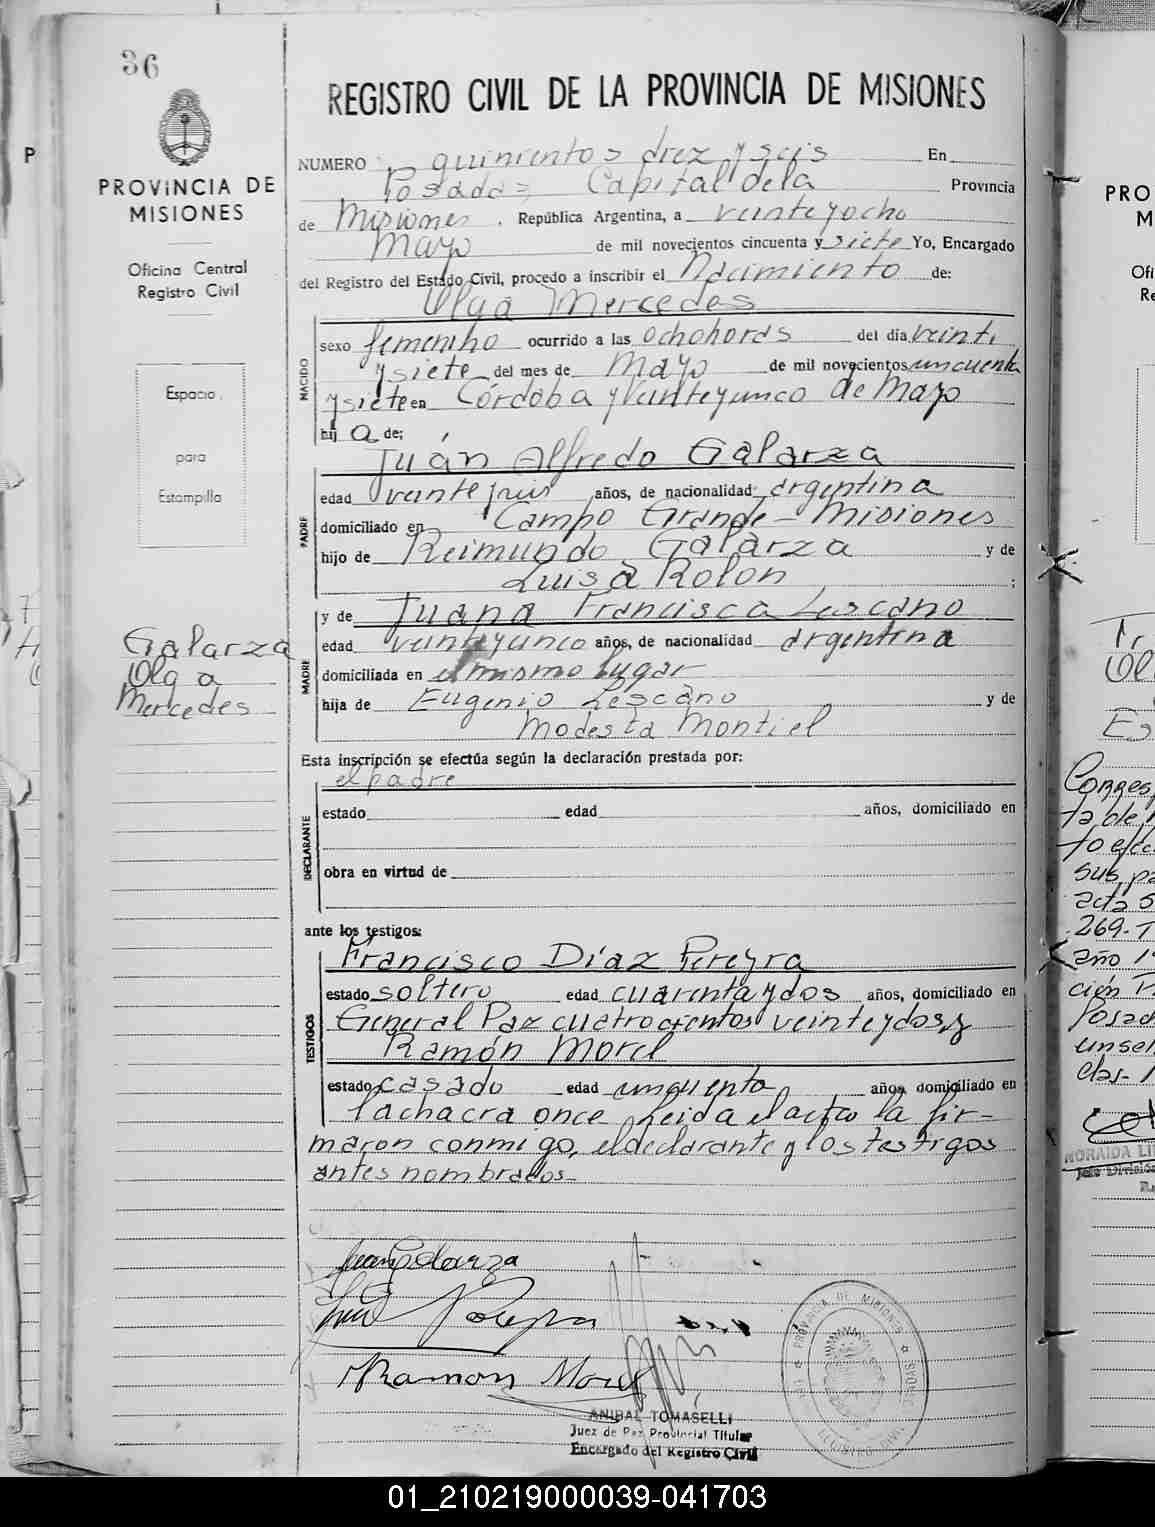 36
PROVINCIA DE
MISIONES
Oficina Central
Registro Civil
Espacio
para
Estampilla
Galarza
Olga
Mercedes
REGISTRO CIVIL DE LA PROVINCIA DE MISIONES
NUMERO quinientos diez y seis En
Posadas, Capital de la Provincia
de Misiones, República Argentina, a veinteyocho
Mayo de mil novecientos cincuenta y siete Yo, Encargado
del Registro del Estado Civil, procedo a inscribir el Nacimiento de:
Olga Mercedes
NACIDO
sexo femenino ocurrido a las ocho horas del día veinti
ysiete del mes de Mayo de mil novecientos cincuenta
ysiete en Córdoba y veinteycinco de Mayo
hij a de;
Juán Alfredo Galarza
PADRE
edad veinte años, de nacionalidad argentina
domiciliado en Campo Grande - Misiones
hijo de Reimundo Galarza y de
Luisa Rolon ;
MADRE
y de Juana Francisca Lescano
edad veinteycinco años, de nacionalidad argentina
domiciliada en el mismo lugar
hija de Eugenio Lescano y de
Modesta Montiel
Esta inscripción se efectúa según la declaración prestada por:
el padre
DECLARANTE
estado edad años, domiciliado en
obra en virtud de
ante los testigos:
TESTIGOS
Francisco Díaz Pereyra
estado soltero edad cuarentaydos años, domiciliado en
General Paz cuatrocientos veinteydos, y
Ramón Morel
estado casado edad cincuenta años, domiciliado en
la chacra once Leida el acta la fir-
maron conmigo, el declarante y los testigos
antes nombrados-
Juan Galarza
Pereyra
Ramon Morel
ANIBAL TOMASELLI
Juez de Paz Provincial Titular
Encargado del Registro Civil
PROVINCIA DE MISIONES
01_210219000039-041703